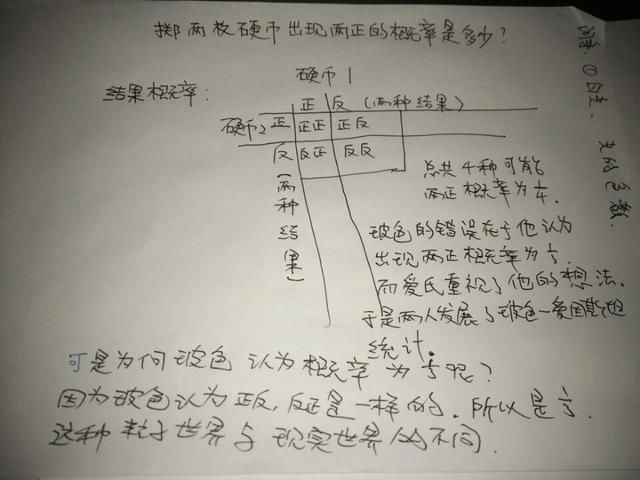 掷两枚硬币出现两正的概率是多少?
硬币1
结果概率:
正 反 (两种结果)
硬币2 正 正正 正反
反 反正 反反
(两种结果)
总共4种可能
两正概率为1/4.
玻色的错误在于他认为
出现两正概率为1/3.
而爱氏重视了他的想法.
于是两人发展了玻色-爱因斯坦
统计.
可是为何玻色认为概率为1/3呢?
因为玻色认为正反,反正是一样的.所以是1/3.
这种粒子世界与现实世界的不同.